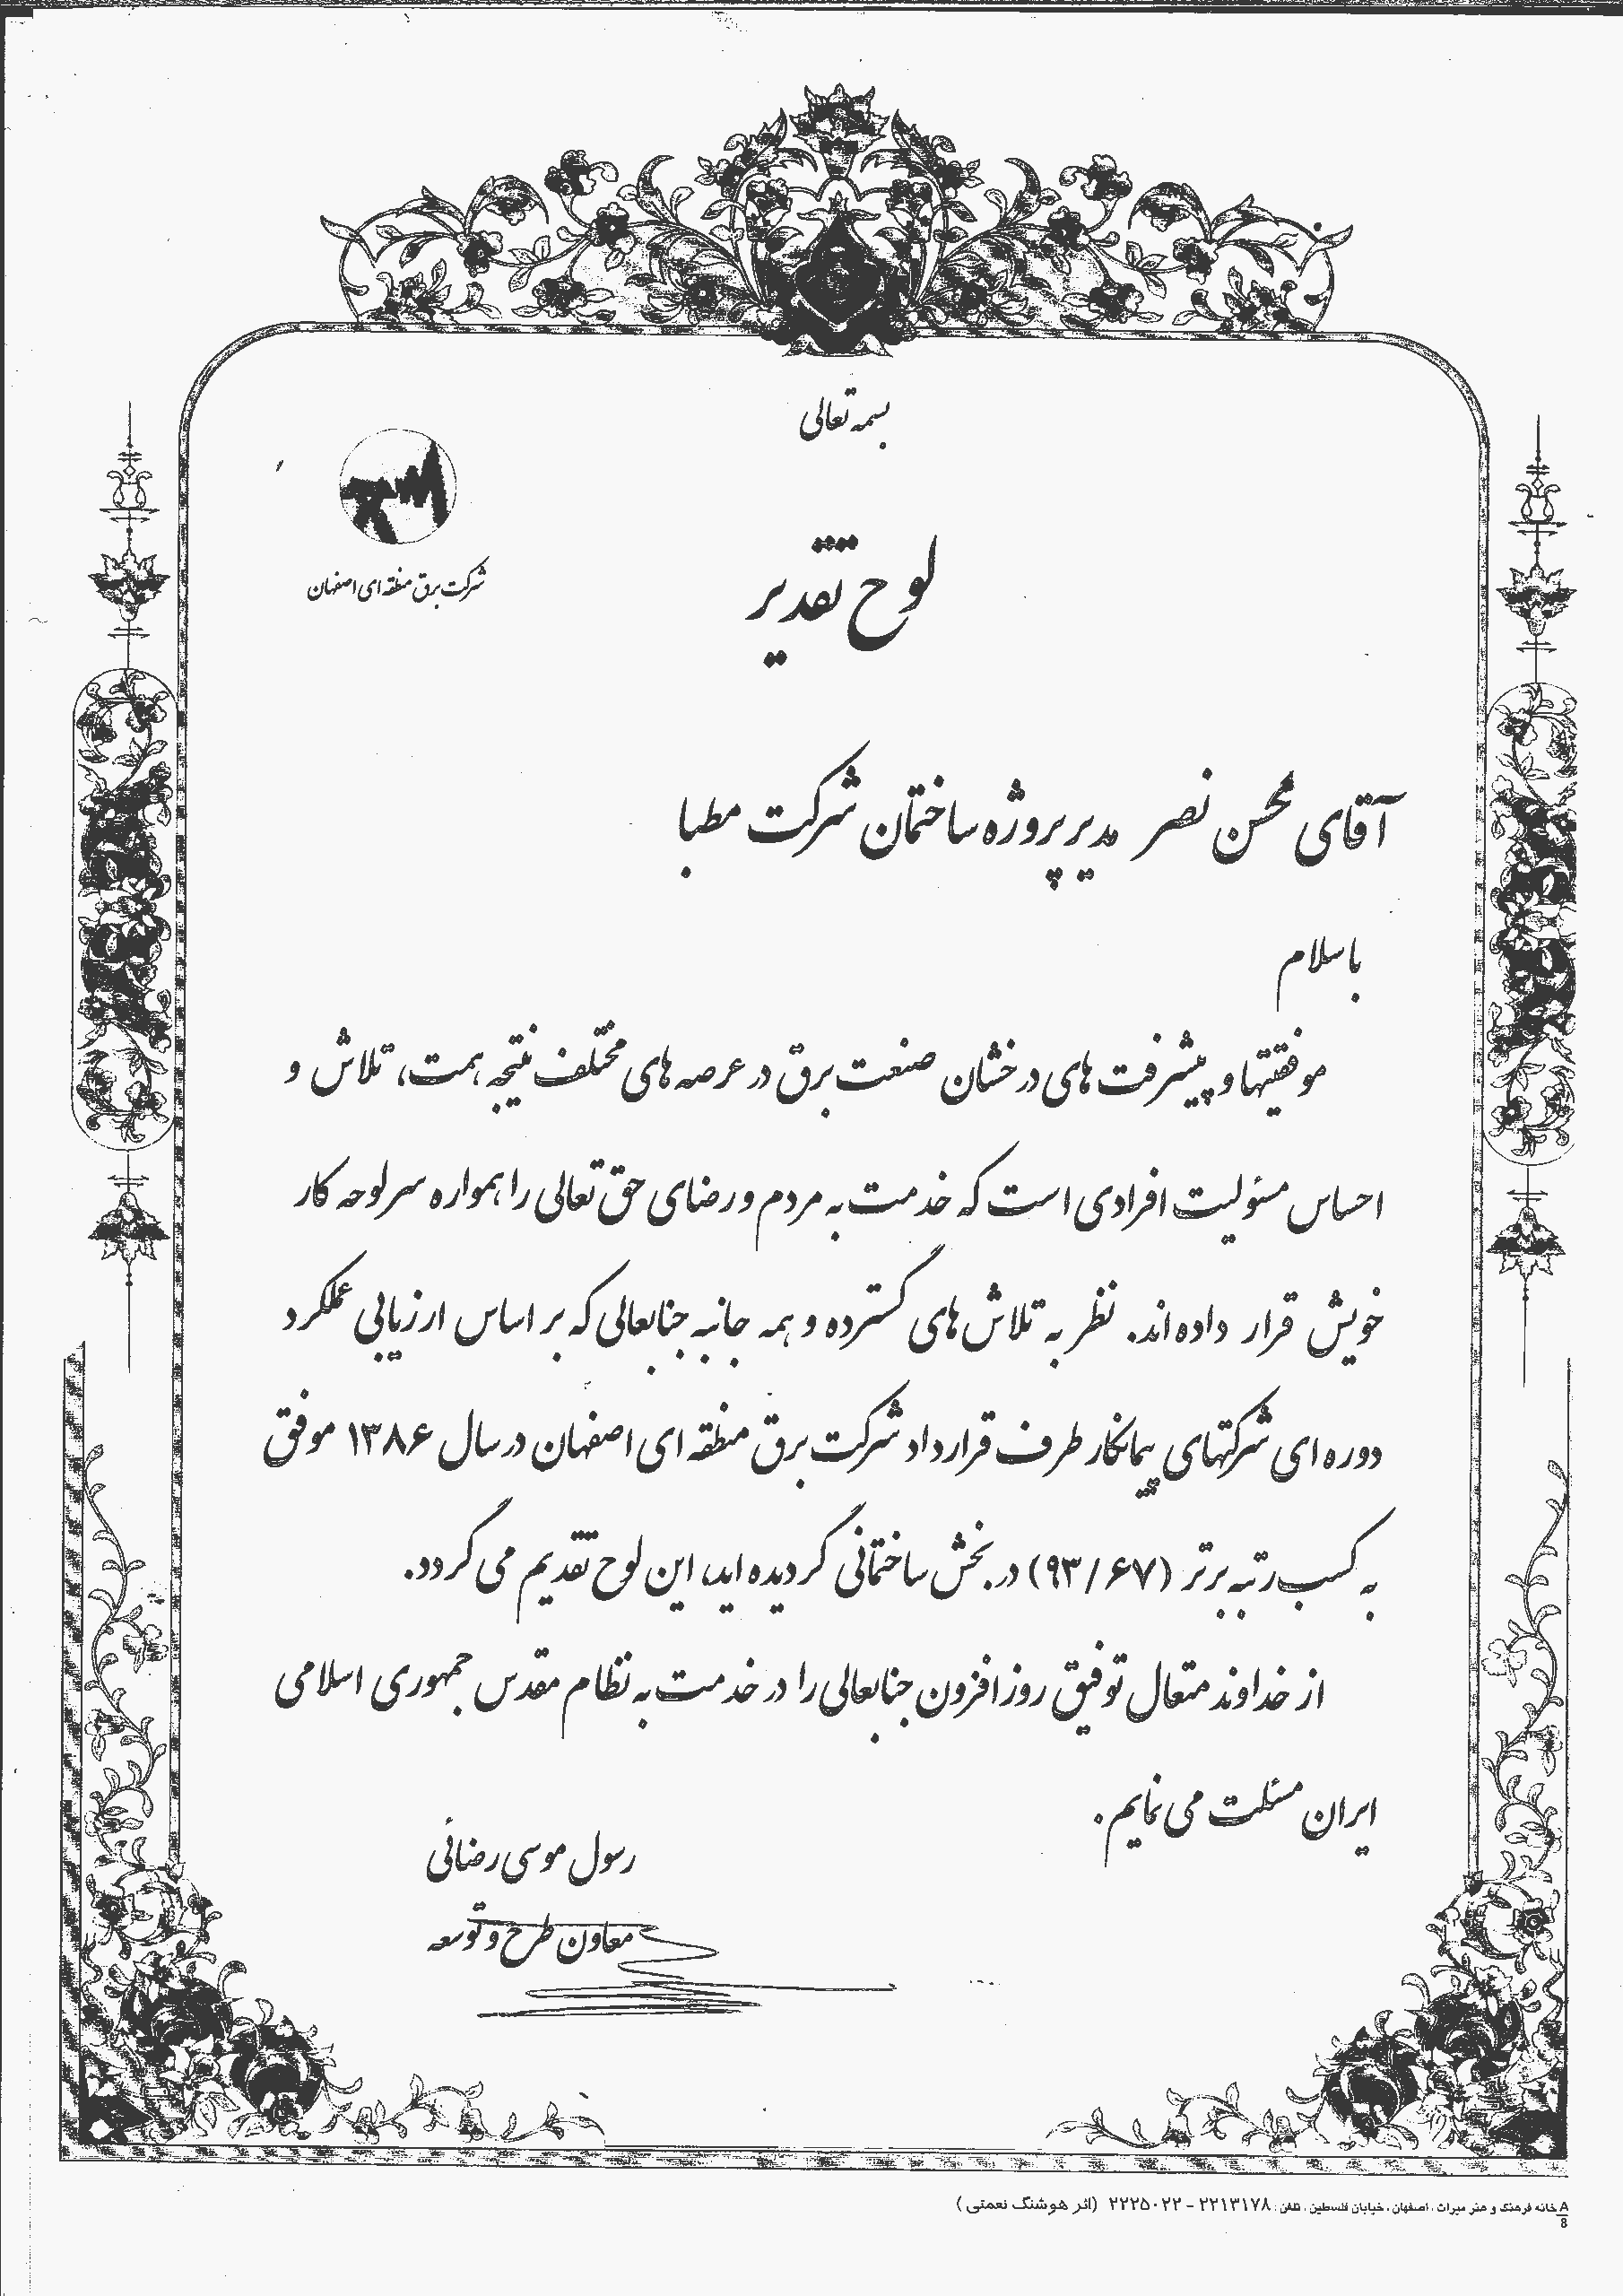 بسمه تعالی
شرکت برق منطقه ای اصفهان
لوح تقدیر
آقای محسن نصر مدیر پروژه ساختمان شرکت مطبا
با سلام
موفقیتها و پیشرفت های درخشان صنعت برق در عرصه های مختلف نتیجه همت، تلاش و
احساس مسئولیت افرادی است که خدمت به مردم و رضای حق تعالی را همواره سرلوحه کار
خویش قرار داده اند. نظر به تلاش های گسترده و همه جانبه جنابعالی که بر اساس ارزیابی عملکرد
دوره ای شرکتهای پیمانکار طرف قرارداد شرکت برق منطقه ای اصفهان در سال ۱۳۸۶ موفق
به کسب رتبه برتر (۹۳/۶۷) در بخش ساختمانی گردیده اید، این لوح تقدیم می گردد.
از خداوند متعال توفیق روز افزون جنابعالی را در خدمت به نظام مقدس جمهوری اسلامی
ایران مسئلت می نمایم.
رسول موسی رضائی
معاون طرح و توسعه
A خانه فرهنگ و هنر میراث ، اصفهان ، خیابان فلسطین ، تلفن : ۲۲۱۳۱۷۸ - ۲۲۲۵۰۲۲ (اثر هوشنگ نعمتی)
8